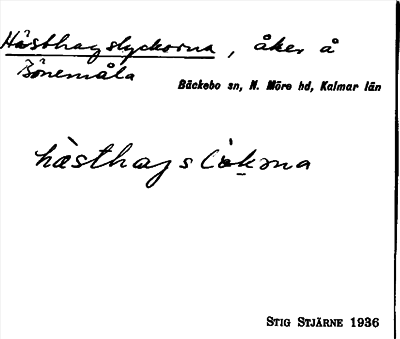 Hästhagslyckorna, åker å
Bönemåla
Bäckebo sn, N. Möre hd, Kalmar län
hàsthagslök̠ma
STIG STJÄRNE 1936